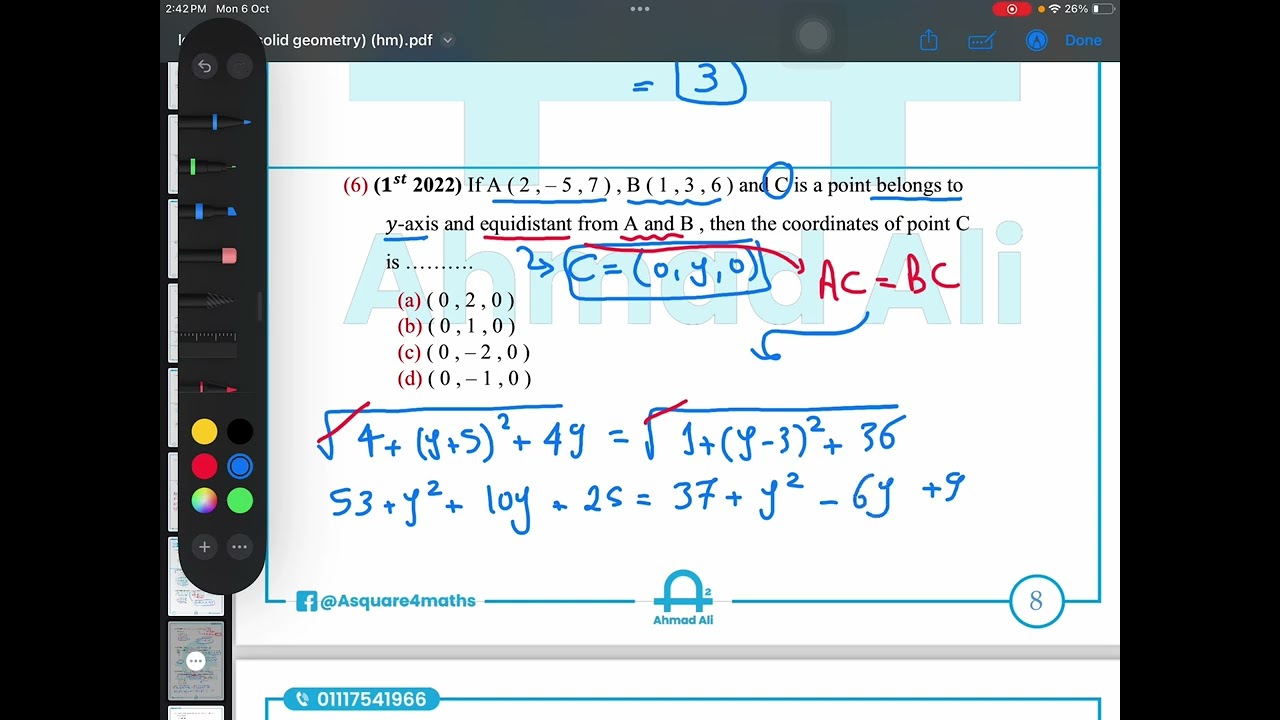 2:42 PM Mon 6 Oct
26%
olid geometry) (hm).pdf
Done
= 3
(6) (1st 2022) If A ( 2 , – 5 , 7 ) , B ( 1 , 3 , 6 ) and C is a point belongs to
y-axis and equidistant from A and B , then the coordinates of point C
is ..........
C = (0, y, 0)
AC = BC
(a) ( 0 , 2 , 0 )
(b) ( 0 , 1 , 0 )
(c) ( 0 , – 2 , 0 )
(d) ( 0 , – 1 , 0 )
Ahmad Ali
√4 + (y+5)² + 49 = √1 + (y-3)² + 36
53 + y² + 10y + 25 = 37 + y² - 6y + 9
@Asquare4maths
2
Ahmad Ali
8
01117541966